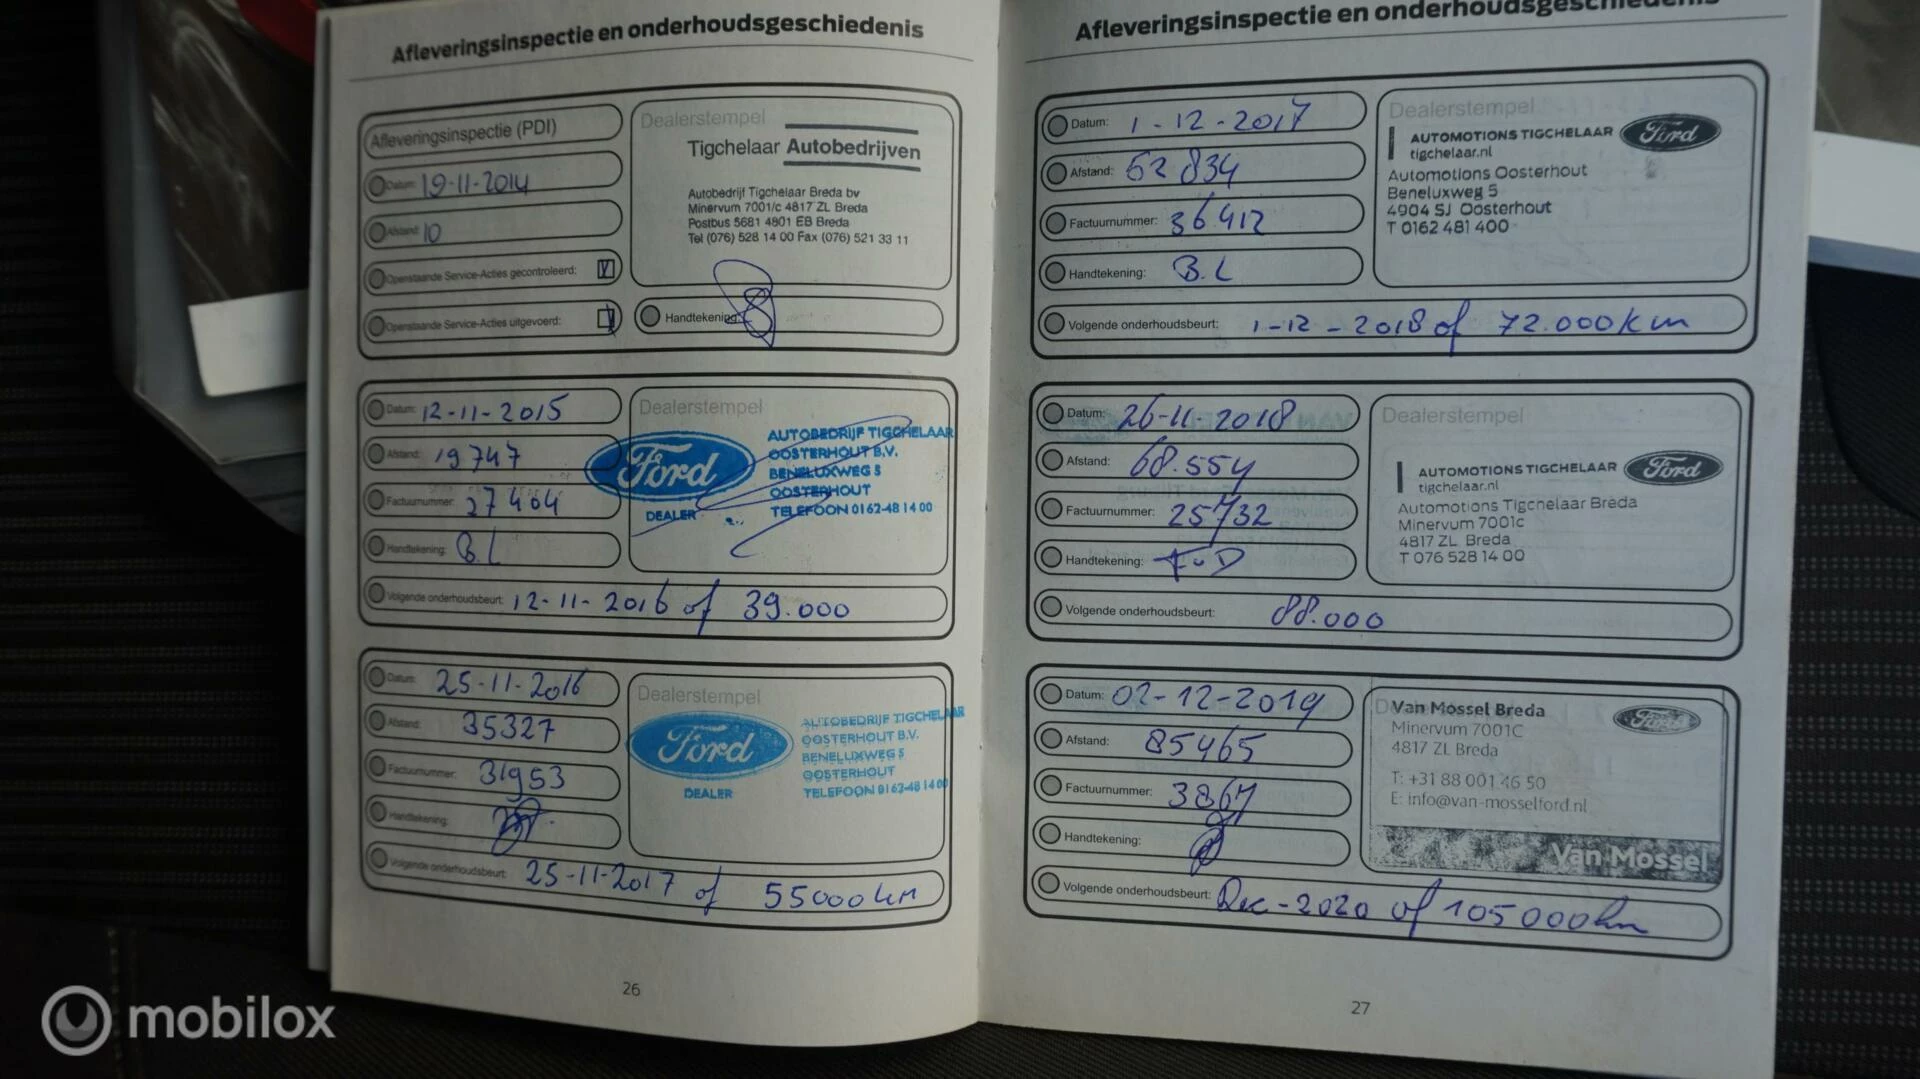 Afleveringsinspectie en onderhoudsgeschiedenis
Afleveringsinspectie (PDI)
Datum: 19-11-2014
Afstand: 10
Openstaande Service-Acties gecontroleerd:
Openstaande Service-Acties uitgevoerd:
Dealerstempel
Tigchelaar Autobedrijven
Autobedrijf Tigchelaar Breda bv
Minervum 7001/c 4817 ZL Breda
Postbus 5681 4801 EB Breda
Tel (076) 528 14 00 Fax (076) 521 33 11
Handtekening:
Datum: 12-11-2015
Afstand: 19747
Factuurnummer: 27464
Handtekening: B.L
Dealerstempel
Ford
DEALER
AUTOBEDRIJF TIGCHELAAR
OOSTERHOUT B.V.
BENELUXWEG 5
OOSTERHOUT
TELEFOON 0162-48 14 00
Volgende onderhoudsbeurt: 12-11-2016 of 39.000
Datum: 25-11-2016
Afstand: 35327
Factuurnummer: 31953
Handtekening:
Dealerstempel
Ford
DEALER
AUTOBEDRIJF TIGCHELAAR
OOSTERHOUT B.V.
BENELUXWEG 5
OOSTERHOUT
TELEFOON 0162-48 14 00
Volgende onderhoudsbeurt: 25-11-2017 of 55000 km
26
Afleveringsinspectie en onderhoudsgeschiedenis
Datum: 1-12-2017
Afstand: 52834
Factuurnummer: 36412
Handtekening: B.L
Dealerstempel
AUTOMOTIONS TIGCHELAAR Ford
tigchelaar.nl
Automotions Oosterhout
Beneluxweg 5
4904 SJ Oosterhout
T 0162 481 400
Volgende onderhoudsbeurt: 1-12-2018 of 72.000 km
Datum: 26-11-2018
Afstand: 68.554
Factuurnummer: 25732
Handtekening: FvD
Dealerstempel
AUTOMOTIONS TIGCHELAAR Ford
tigchelaar.nl
Automotions Tigchelaar Breda
Minervum 7001c
4817 ZL Breda
T 076 528 14 00
Volgende onderhoudsbeurt: 88.000
Datum: 02-12-2019
Afstand: 85465
Factuurnummer: 3867
Handtekening:
Van Mossel Breda Ford
Minervum 7001C
4817 ZL Breda
T: +31 88 001 46 50
E: info@van-mosselford.nl
Van Mossel
Volgende onderhoudsbeurt: Dec-2020 of 105000 km
27
mobilox